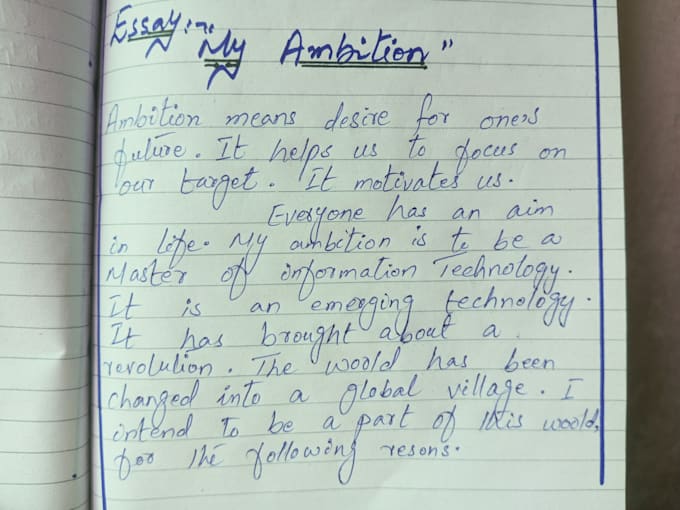 Essay:- "My Ambition"
Ambition means desire for one's
future. It helps us to focus on
our target. It motivates us.
Everyone has an aim
in life. My ambition is to be a
Master of information Technology.
It is an emerging technology.
It has brought about a
revolution. The world has been
changed into a global village. I
intend to be a part of this world,
for the following resons.